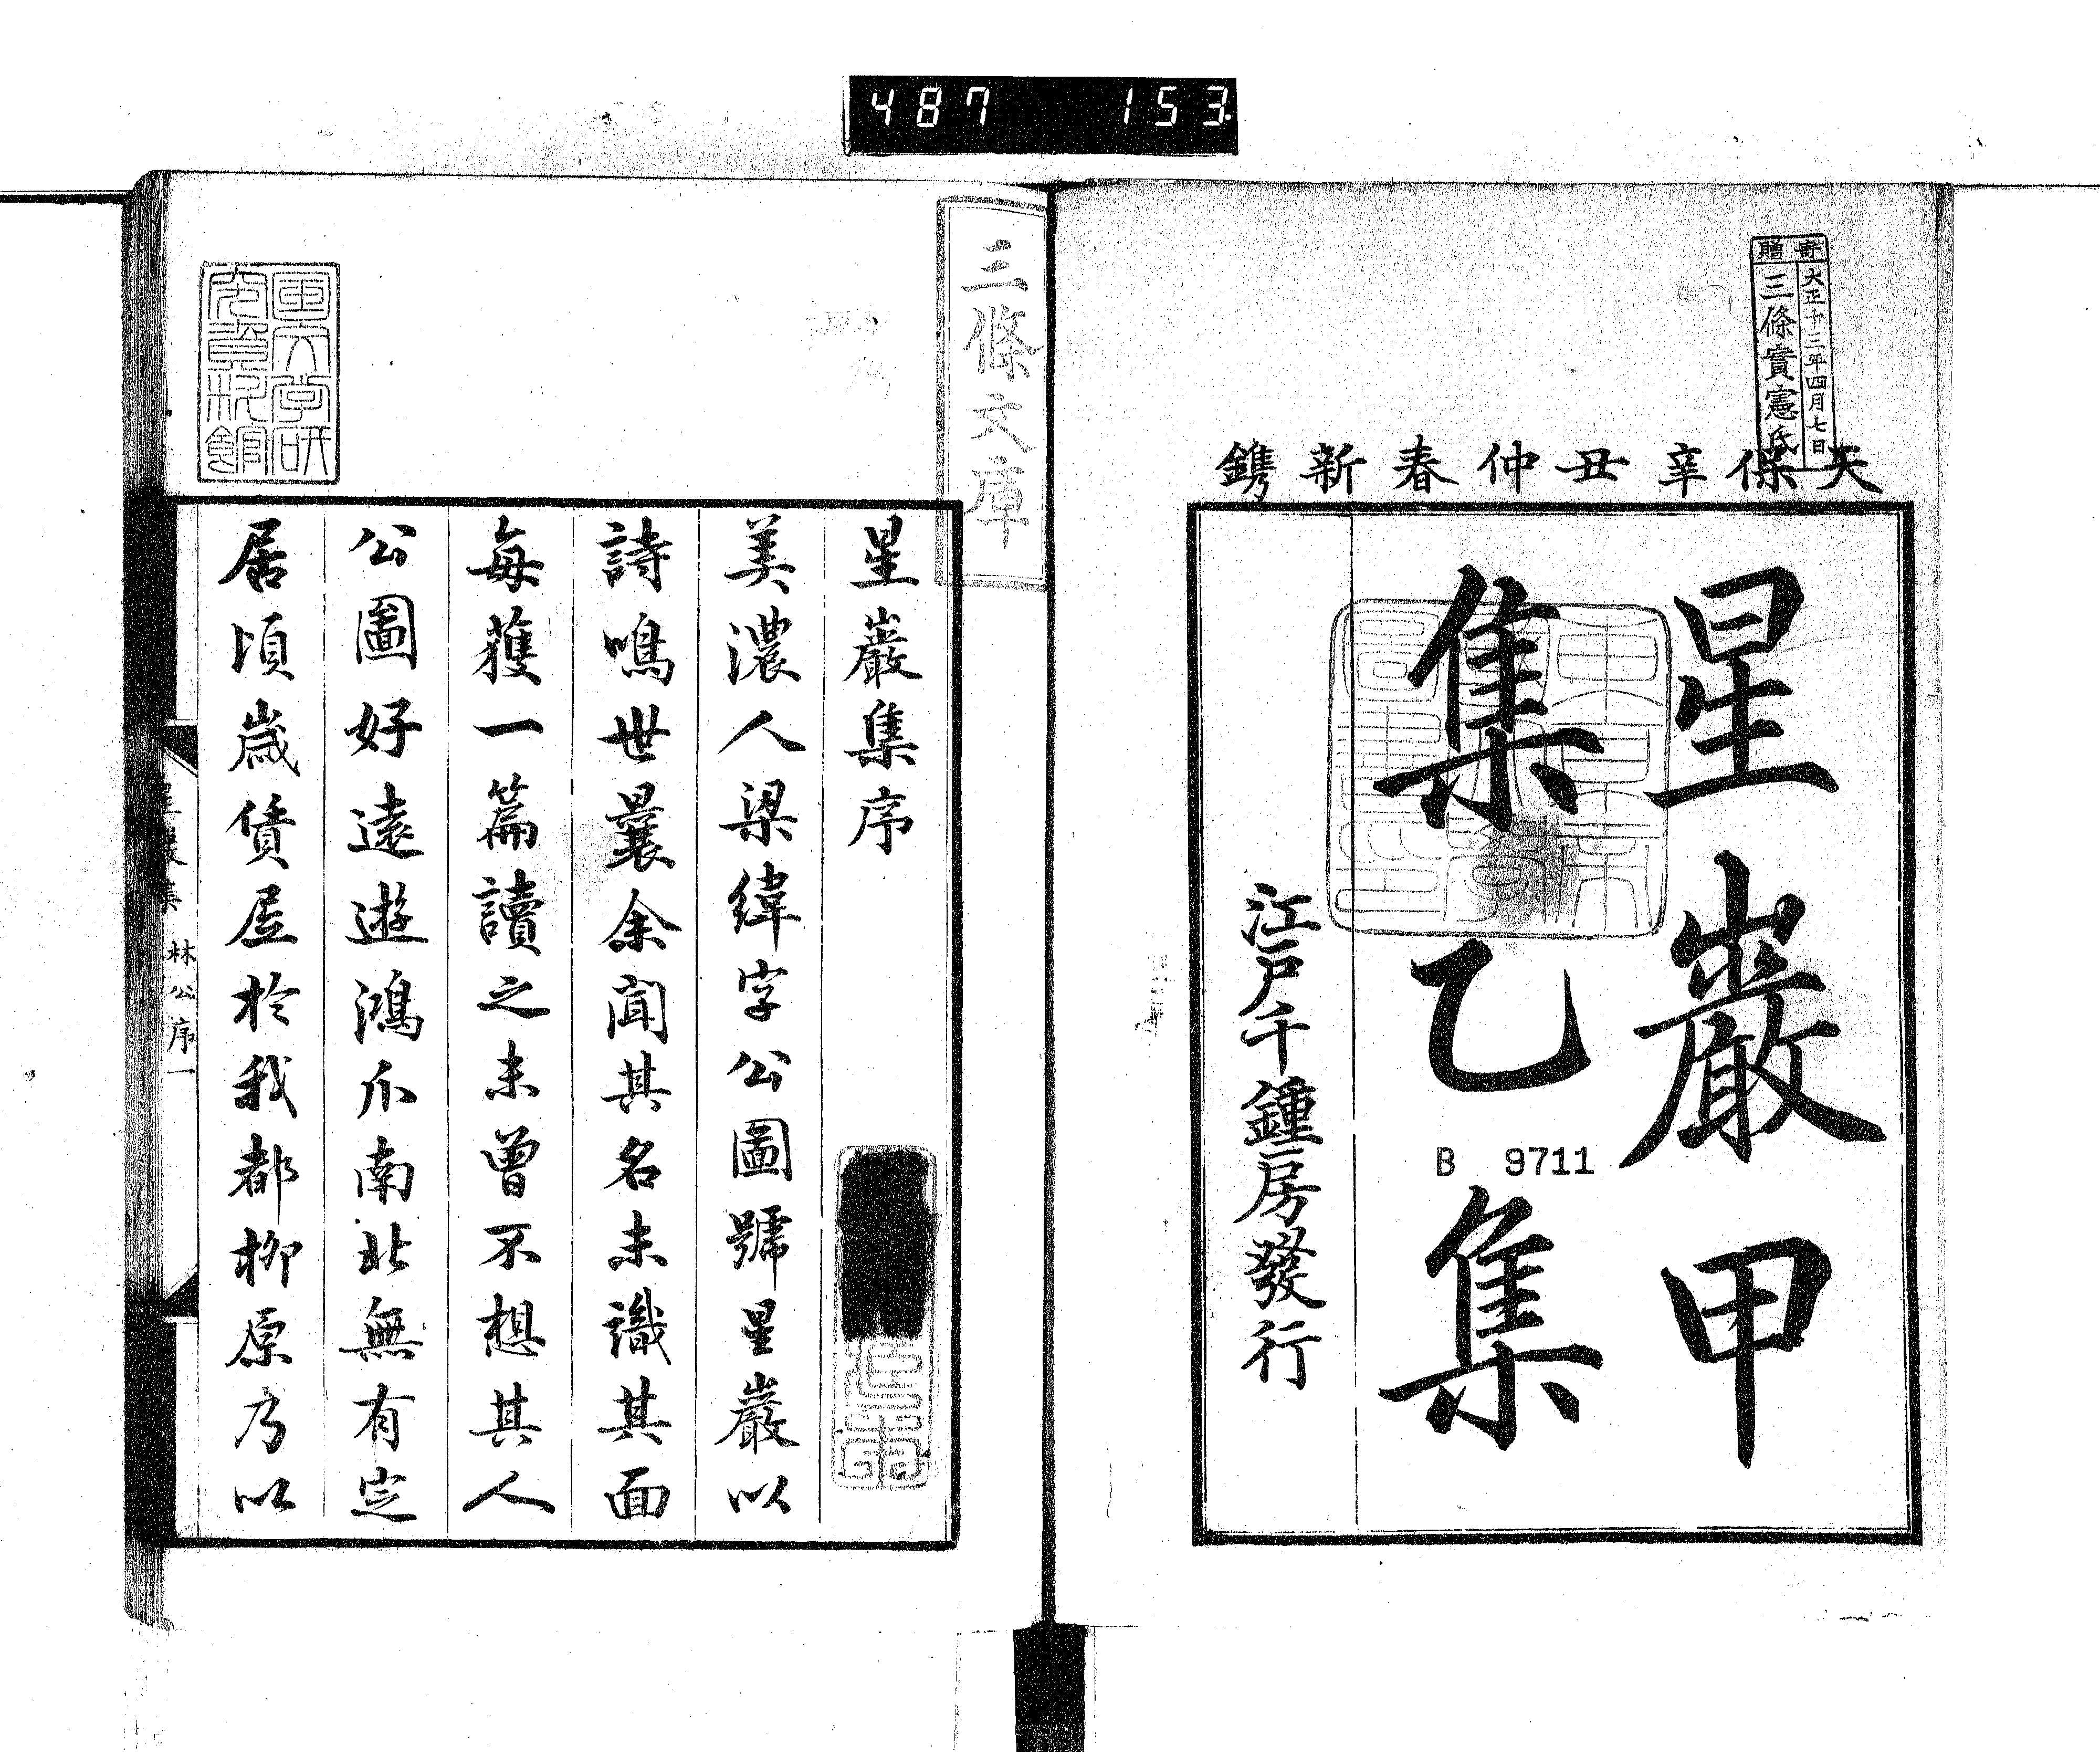 487 153
寄贈
大正十三年四月七日
三條實憲氏
天保辛丑仲春新鐫
星巖甲
集乙集
江戸千鍾房發行
B 9711
三條文庫
星巖集序
美濃人梁緯字公圖號星巖以
詩鳴世曩余聞其名未識其面
每獲一篇讀之未曾不想其人
公圖好遠遊鴻爪南北無有定
居頃歲賃居於我都柳原乃以
星巖集 林公序 一
国文学研究資料館